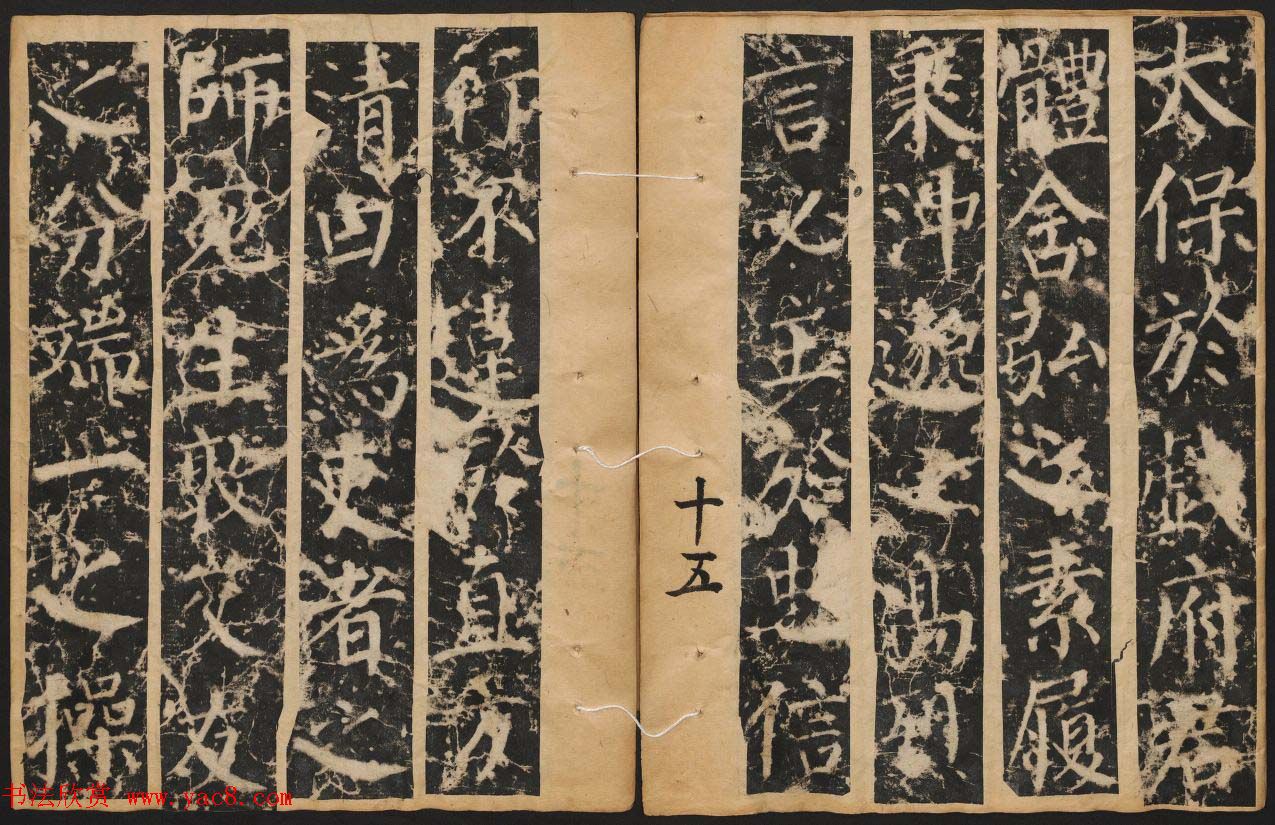 太保於戲府君
體含弘之素履
秉沖邈之高烈
言必主於忠信
十五
行不違於直方
清白為吏者之
師死生敦交友
之分端一之操
书法欣赏 www.yac8.com